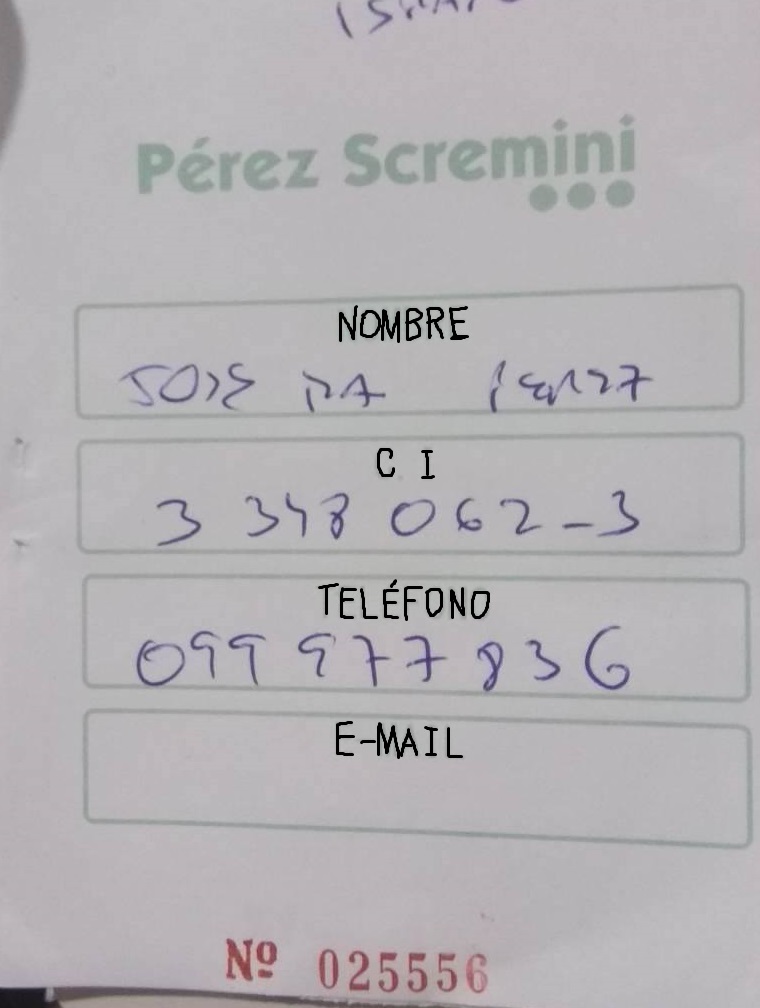 Pérez Scremini
NOMBRE
JOSE MA PEREZ
C I
3 348 062-3
TELÉFONO
099 977 836
E-MAIL
Nº 025556